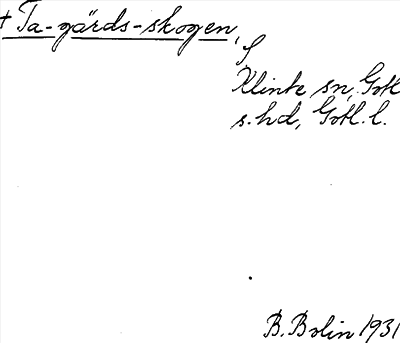 † Ta-gårds-skogen, S
Klinte sn, Gotl
s. hd, Gotl. l.
B. Bolin 1931